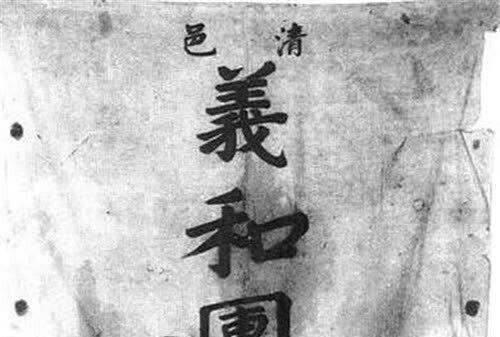 清邑
義和團